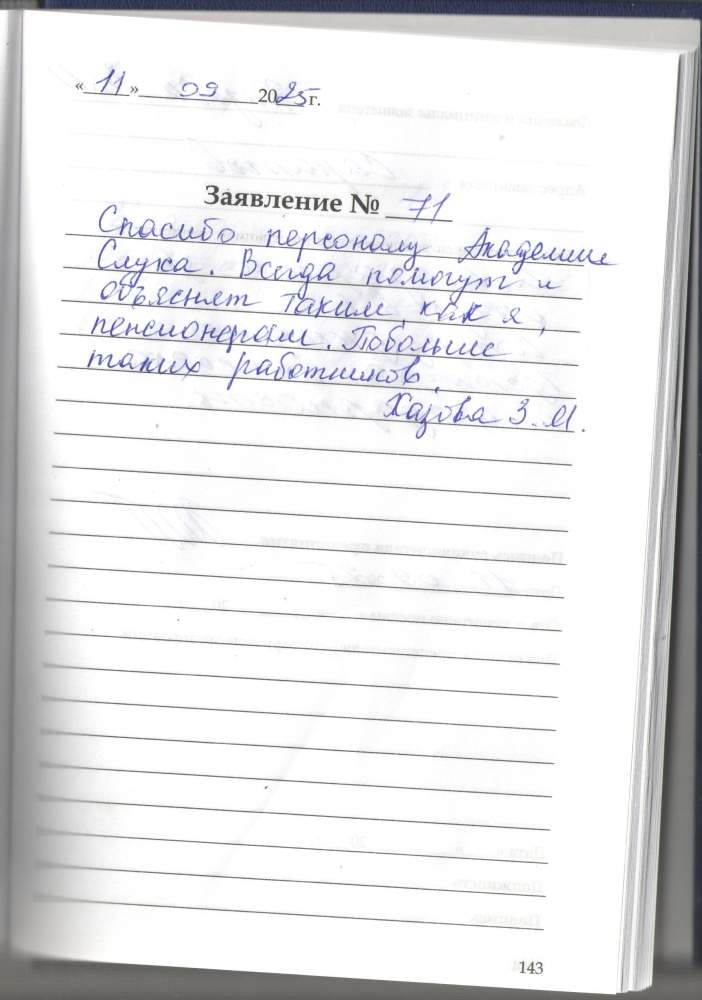 « 11 » 09 2025 г.
Заявление № 71
Спасибо персоналу Академии
Слуха. Всегда помогут и
объяснят таким, как я,
пенсионерам. Побольше
таких работников.
Хазова З. М.
143